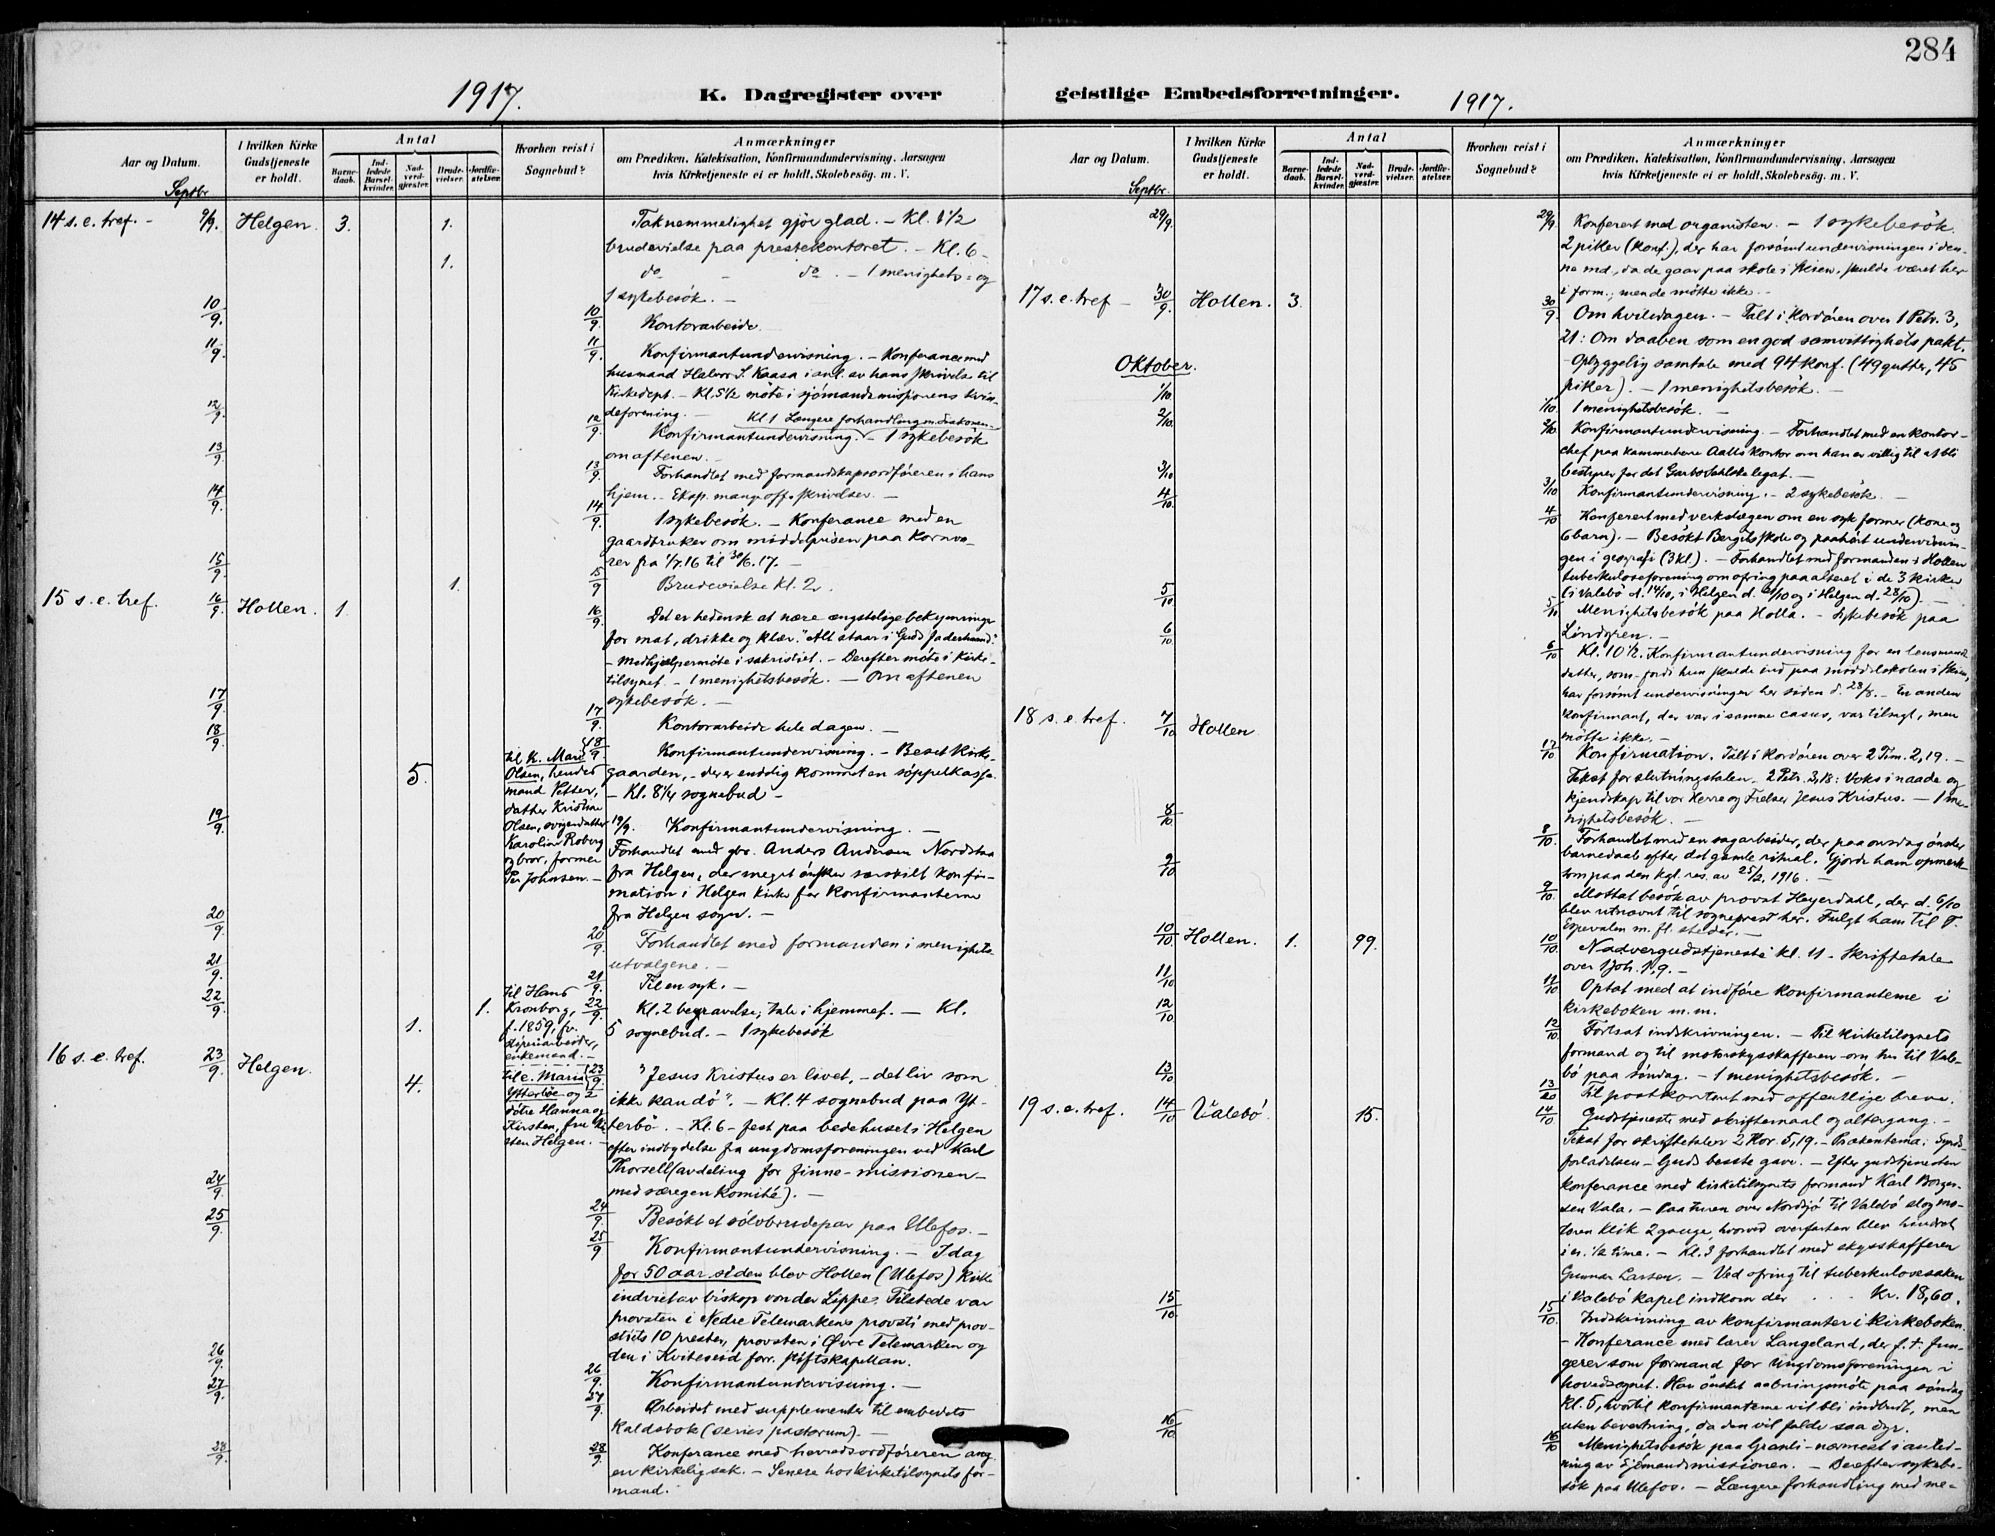 284
1917.
K. Dagregister over
geistlige Embedsforretninger.
1917.
Aar og Datum.
I hvilken Kirke Gudstjeneste er holdt.
Antal
Barnedaab.
Indledede Barselkvinder.
Nadverdgjæster.
Brudevielser.
Jordfæstelser.
Hvorhen reist i Sognebud?
Anmærkninger
om Prædiken, Katekisation, Konfirmandundervisning, Aarsagen
hvis Kirketjeneste ei er holdt, Skolebesøg, m. V.
Septbr.
14 s. e. tref. - 9/9. Helgen. 3. 1.
Taknemmelighet gjör glad. - Kl. 1 1/2
brudevielse paa prestekontoret. - Kl. 6 -
1.
do - do. - 1 menighets= og
1 sykebesök. -
10/9. Kontorarbeide.
11/9. Konfirmantundervisning. - Konferance med
husmand Halvor S. Kaasa i anl. av hans skrivelse til
Kirkedept. - Kl. 5 1/2 møte i sjömandsmissionens kvin-
deforening. -
Kl. 1 Længere forhandling m. diakonen
12/9. Konfirmantundervisning. - 1 sykebesök
om aftenen. -
13/9. Forhandlet med formandskapsordföreren i hans
hjem. - Eksp. mange off. skrivelser. -
14/9. 1 sykebesök. - Konferance med en
gaardbruker om middelprisen paa kornva-
rer fra 1/7.16 til 30/6.17. -
15/9 1. Brudevielse kl. 2. -
15 s. e. tref. 16/9. Hollen. 1.
Det er hedensk at nære ængstelige bekymringer
for mat, drikke og klær. "Alt staar i Guds faderhaand."
- Medhjælpermöte i sakristiet. - Derefter möte i kirke-
tilsynet. - 1 menighetsbesök. - Om aftenen
sykebesök. -
17/9. Kontorarbeide hele dagen. -
18/9 5.
til k. Marie
Olsen, hendes
mand Petter,
datter Kristine
Olsen, svigerdatter
Karoline Roberg
og bror, former
Per Johnsen. -
Konfirmantundervisning. - Beset kirke-
gaarden, - der er endelig kommet en söppelkasse.
- Kl. 8 1/4 sognebud -
19/9. Konfirmantundervisning. -
Forhandlet med gbr. Anders Andersen Nordstaa
fra Helgen, der meget önsker særskilt konfir-
mation i Helgen kirke for konfirmanterne
fra Helgen sogn. -
20/9 Forhandlet med formanden i menighets-
utvalgene. -
21/9. Til en syk. -
22/9. 1. 1.
til Hans
Kronborg,
f. 1859, fv.
sliperiarbeider,
enkemand. -
Kl. 2 begravelse; tale i hjemmet. - Kl.
5 sognebud. - 1 sykebesök
16 s. e. tref. 23/9. Helgen. 4.
til e. Maria
Ytterböe og 2
dötre Hanna og
Kirsten, fru Kir-
sten Helgen. -
"Jesus Kristus er livet, - det liv som
ikke kan dö". - Kl. 4 sognebud paa Yt-
terbö. - Kl. 6 - fest paa bedehuset i Helgen
efter indbydelse fra ungdomsforeningen ved Karl
Thorsell (avdeling for finne-missionen -
med særegen komité). -
24/9. Besökt et sölvbrudepar paa Ulefos. -
25/9 Konfirmantundervisning. - Idag
for 50 aar siden blev Hollen (Ulefos) kirke
indviet av biskop von der Lippe. Tilstede var
provsten i Nedre Telemarkens provsti med prov-
stiets 10 prester, provsten i Øvre Telemarken og
den i Kviteseid forr. stiftskapellan.
26/9. Konfirmantundervisning. -
27/9. Arbeidet med supplementer til embedets
kaldsbok (series pastorum). -
28/9. Konferance med herredsordföreren ang.
en kirkelig sak. - Senere hos kirketilsynets for-
mand.
Aar og Datum.
I hvilken Kirke Gudstjeneste er holdt.
Antal
Barnedaab.
Indledede Barselkvinder.
Nadverdgjæster.
Brudevielser.
Jordfæstelser.
Hvorhen reist i Sognebud?
Anmærkninger
om Prædiken, Katekisation, Konfirmandundervisning, Aarsagen
hvis Kirketjeneste ei er holdt, Skolebesøg, m. V.
Septbr.
29/9. Konferert med organisten. - 1 sykebesök.
2 piker (konf.), der har forsömt undervisningen i den-
ne md., da de gaar paa skole i Skien, skulde været her
i form.; men de mötte ikke. -
17 s. e. tref - 30/9. Hollen. 3.
Om hviledagen. - Talt i kordören over 1 Petr. 3,
21: Om daaben som en god samvittighets pakt.
- Opbyggelig samtale med 94 konf. (49 gutter, 45
piker). - 1 menighetsbesök. -
Oktober.
1/10. 1 menighetsbesök. -
2/10. Konfirmantundervisning. - Forhandlet med en kontor-
chef paa kammerherre Aalls kontor om han er villig til at bli
bestyrer for det legat. -
3/10 Konfirmantundervisning. - 2 sykebesök. -
4/10. Konferert med verkslægen om en syk former (kone og
6 barn). - Besökt Bergits skole og paahört undervisnin-
gen i geografi (3 kl.). - Forhandlet med formanden i Hollen
tuberkuloseforening om ofring paa alteret i de 3 kirker
(i Valebö d. 14/10, i Helgen d. 21/10 og i Helgen d. 28/10). -
5/10 Menighetsbesök paa Holla. - Sykebesök paa
Lindgren. -
6/10 Kl. 10 1/2. Konfirmantundervisning for en lensmands-
datter, som - fordi hun skulde ind paa middelskolen i Skien,
har forsömt undervisningen her siden d. 28/8. - En anden
konfirmant, der var i samme casus, var tilsagt, men
mötte ikke. -
18 s. e. tref. 7/10 Hollen
Konfirmation. Talt i kordören over 2 Tim. 2, 19. -
Tekst for slutningstalen - 2 Petr. 3, 18: Voks i naade og
kjendskap til vor Herre og Frelser Jesus Kristus. - 1 me-
nighetsbesök. -
8/10. Forhandlet med en sagarbeider, der paa onsdag önsker
barnedaab efter det gamle ritual. Gjorde ham opmerk-
som paa den kgl. res. av 25/2, 1916. -
9/10. Mottat besök av provst Heyerdahl, der d. 6/10
blev utnævnt til sogneprest her. Fulgt ham til
m. fl. steder. -
10/10. Hollen. 1. 99.
Nadvergudstjeneste kl. 11. Skriftetale
over 1 Joh. 1, 9. -
11/10 Optat med at indföre konfirmanterne i
kirkeboken m. m.
12/10. Fortsat indskrivningen. - Til kirketilsynets
formand og til motorskysskafferen om tur til Vale-
bö paa söndag. - 1 menighetsbesök. -
13/10 Til postkontoret med offentlige breve.
19 s. e. tref. 14/10 Valebö. 15.
Gudstjeneste med skriftemaal og altergang. -
Tekst for skriftetalen 2 Kor. 5, 19. - Prækentema: Synds-
forladelsen - Guds beste gave. - Efter gudstjenesten
konferance med kirketilsynets formand Karl Borger-
sen Vala. - Paa turen over Nordsjö til Valebö slog mo-
toren klik 2 gange, hvorved overfarten blev hindret
i en 1/2 time. - Kl. 3 forhandlet med skysskafferen
Gunnar Larsen. - Ved ofring til tuberkulosesaken
i Valebö kapel indkom der . . . Kr. 18,60.
15/10. Indskrivning av konfirmanter i kirkeboken.
- Konferance med lærer Langeland, der f. t. fun-
gerer som formand for Ungdomsforeningen i
hovedsognet. Har önsket aabningsmöte paa söndag
kl. 5, hvortil konfirmanterne vil bli indbudt, men
uten bevertning, da den vil falde saa dyr.
16/10 Menighetsbesök paa Granli - nærmest i anled-
ning av Sjömandsmissionen. - Derefter sykebe-
sök paa Ulefos. - Længere forhandling med me-